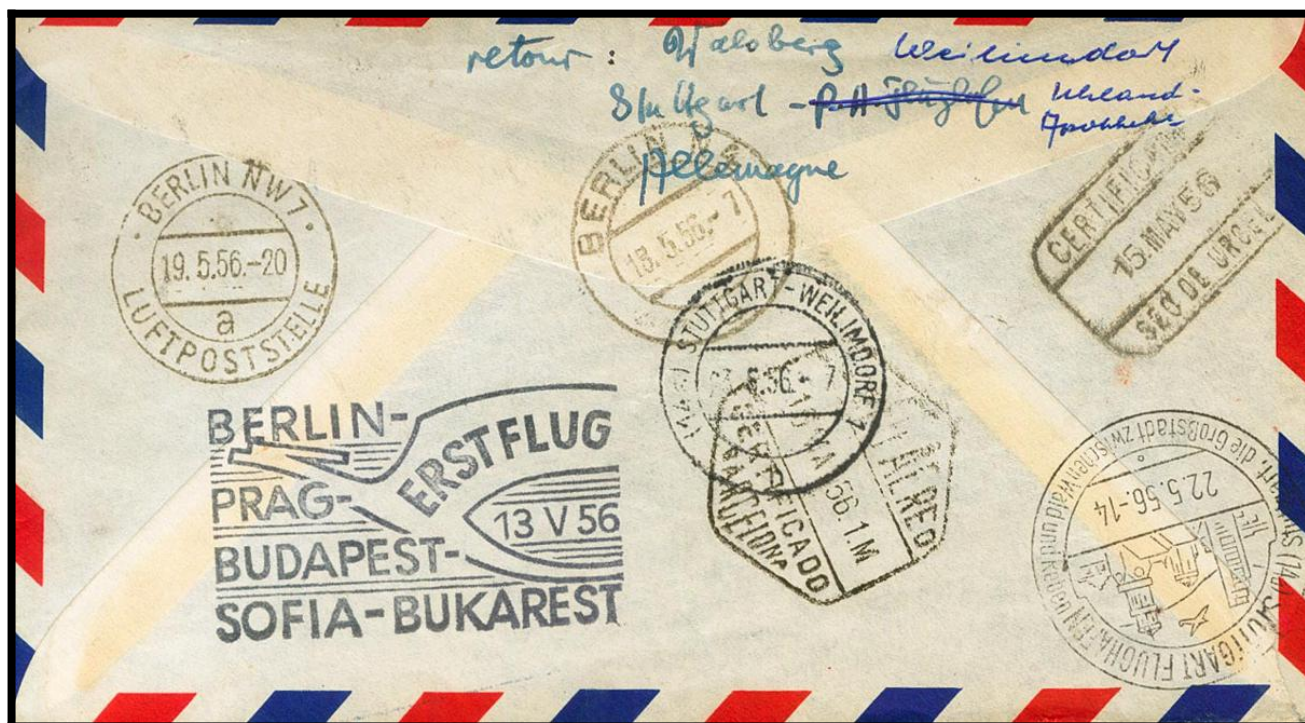 retour : Walsberg Weilimdorf
Stuttgart - Uhland-
Apotheke
Allemagne
BERLIN NW 7
19.5.56.-20
a
LUFTPOSTSTELLE
BERLIN
18.5.56.-7
CERTIFICADO
15.MAY56
SEO DE URGEL
STUTTGART-WEILIMDORF 1
5.56.-7
AEREO
56.1.M
CERTIFICADO
BARCELONA
BERLIN-
PRAG-
BUDAPEST-
SOFIA-BUKAREST
ERSTFLUG
13 V 56
(14a) STUTTGART FLUGHAFEN
die Großstadt zwischen Wald und Reben
22.5.56.-14